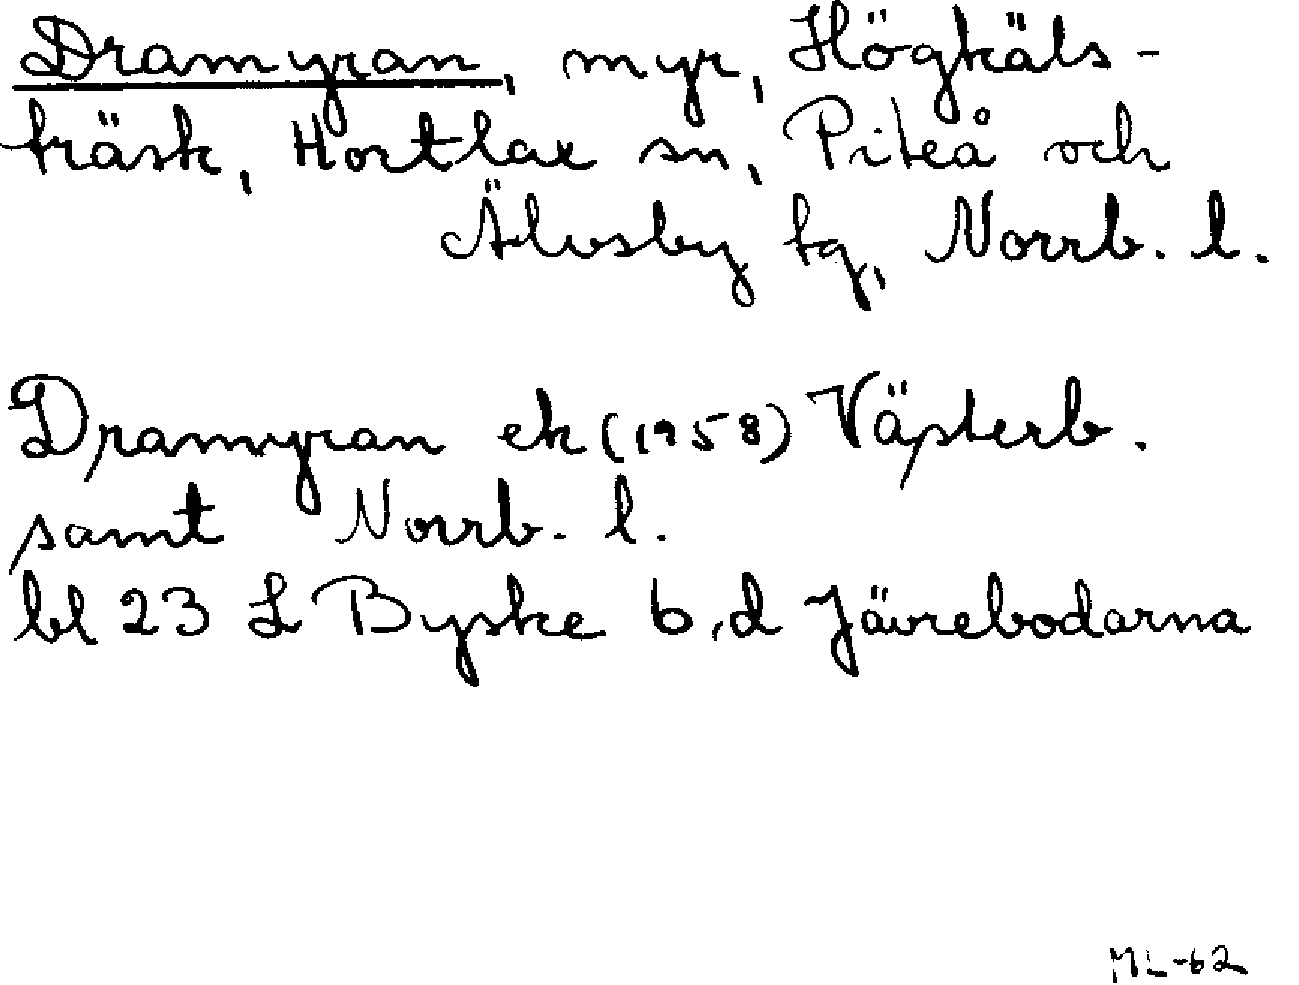 Dramyran, myr, Högkäls-
träsk, Hortlax sn, Piteå och
Älvsby tg, Norrb. l.
Dramyran ek (1958) Västerb.
samt Norrb. l.
bl 23 L Byske b,d Jävrebodarna
ML-62